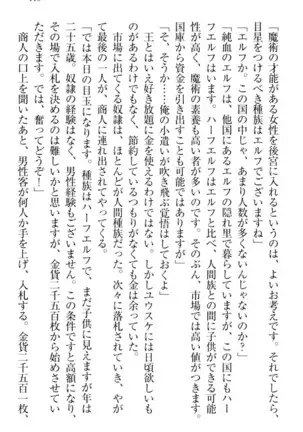 「魔術の才能がある女性を後宮に入れるというのは、よいお考えです。それでしたら、
目星をつけるべき種族はエルフでございますね」
「エルフか。この国の中じゃ、あまり人数が多くないんじゃないのか？」
「純血のエルフは、他国にあるエルフの隠れ里で暮らしていますが、この国にもハー
フエルフはいます。ハーフエルフはエルフと比べ、人間族との間に子供ができる可能
性が高く、魔術の素養も高い者が多いのです。そのぶん、市場では高い値がつきます。
国庫から資金を引き出すことも可能ではありますが」
「そ、そうか……俺の小遣いが吹き飛ぶ覚悟はしておくよ」
王とはいえ好き放題に金を使えるわけではない。しかしユウスケには日頃欲しいも
のがあるわけでもなく、節約しているつもりがなくても金は余っていた。
市場に出てくる奴隷は、ほとんどが人間種族だった。次々に落札されていき、やが
て最後の一人が、商人に連れ出されてやってくる。
「では本日の目玉になります。種族はハーフエルフで、まだ子供に見えますが年は
二十五歳。奴隷の経験はなく、男性経験もございません。この条件ですと高額になり、
その場で入札を決めるのは難しいかと思いますが、金貨二千五百枚から始めさせてい
ただきます。では、奮ってどうぞ！」
商人の口上を聞いたあと、男性客が何人か手を上げ、入札する。金貨二千五百一枚、